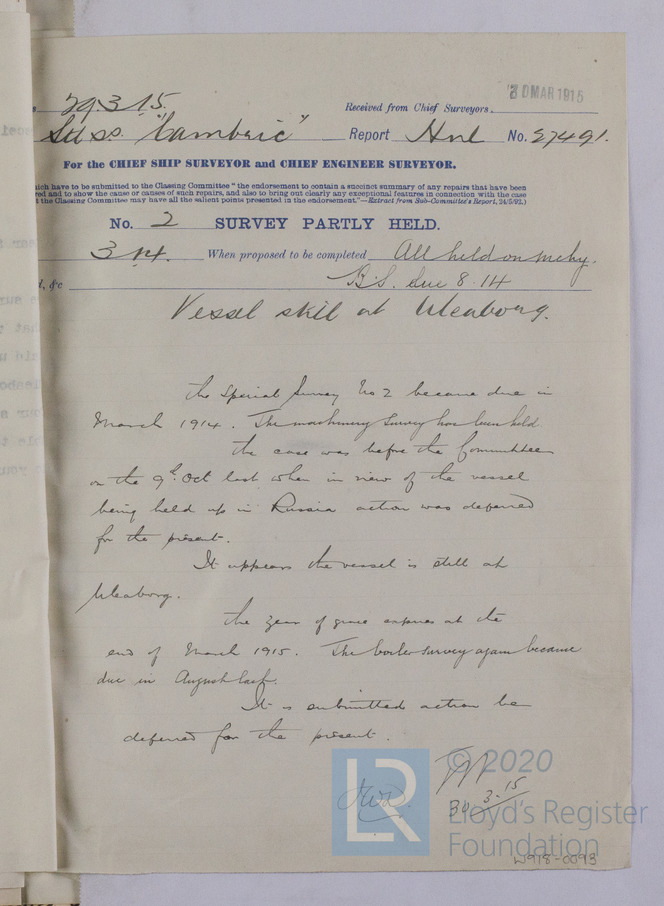 29.3.15.
30 MAR 1915
Received from Chief Surveyors.
S.S. "Cambric" Report Hul No. 27491.
For the CHIEF SHIP SURVEYOR and CHIEF ENGINEER SURVEYOR.
ich have to be submitted to the Classing Committee "the endorsement to contain a succinct summary of any repairs that have been
red and to show the cause or causes of such repairs, and also to bring out clearly any exceptional features in connection with the case
the Classing Committee may have all the salient points presented in the endorsement."—(Extract from Sub-Committee's Report, 24/5/92.)
No. 2 SURVEY PARTLY HELD.
3.14. When proposed to be completed All held on mchy.
d, &c B.S. due 8.14
Vessel still at Uleaborg.
The Special Survey No 2 became due in
March 1914. The machinery survey has been held.
The case was before the Committee
on the 9th Oct last when in view of the vessel
being held up in Russia action was deferred
for the present.
It appears the vessel is still at
Uleaborg.
The year of grace expires at the
end of March 1915. The boiler survey again became
due in August last.
It is submitted action be
deferred for the present.
30.3.15
LR
© 2020
Lloyd's Register
Foundation
W978-0093